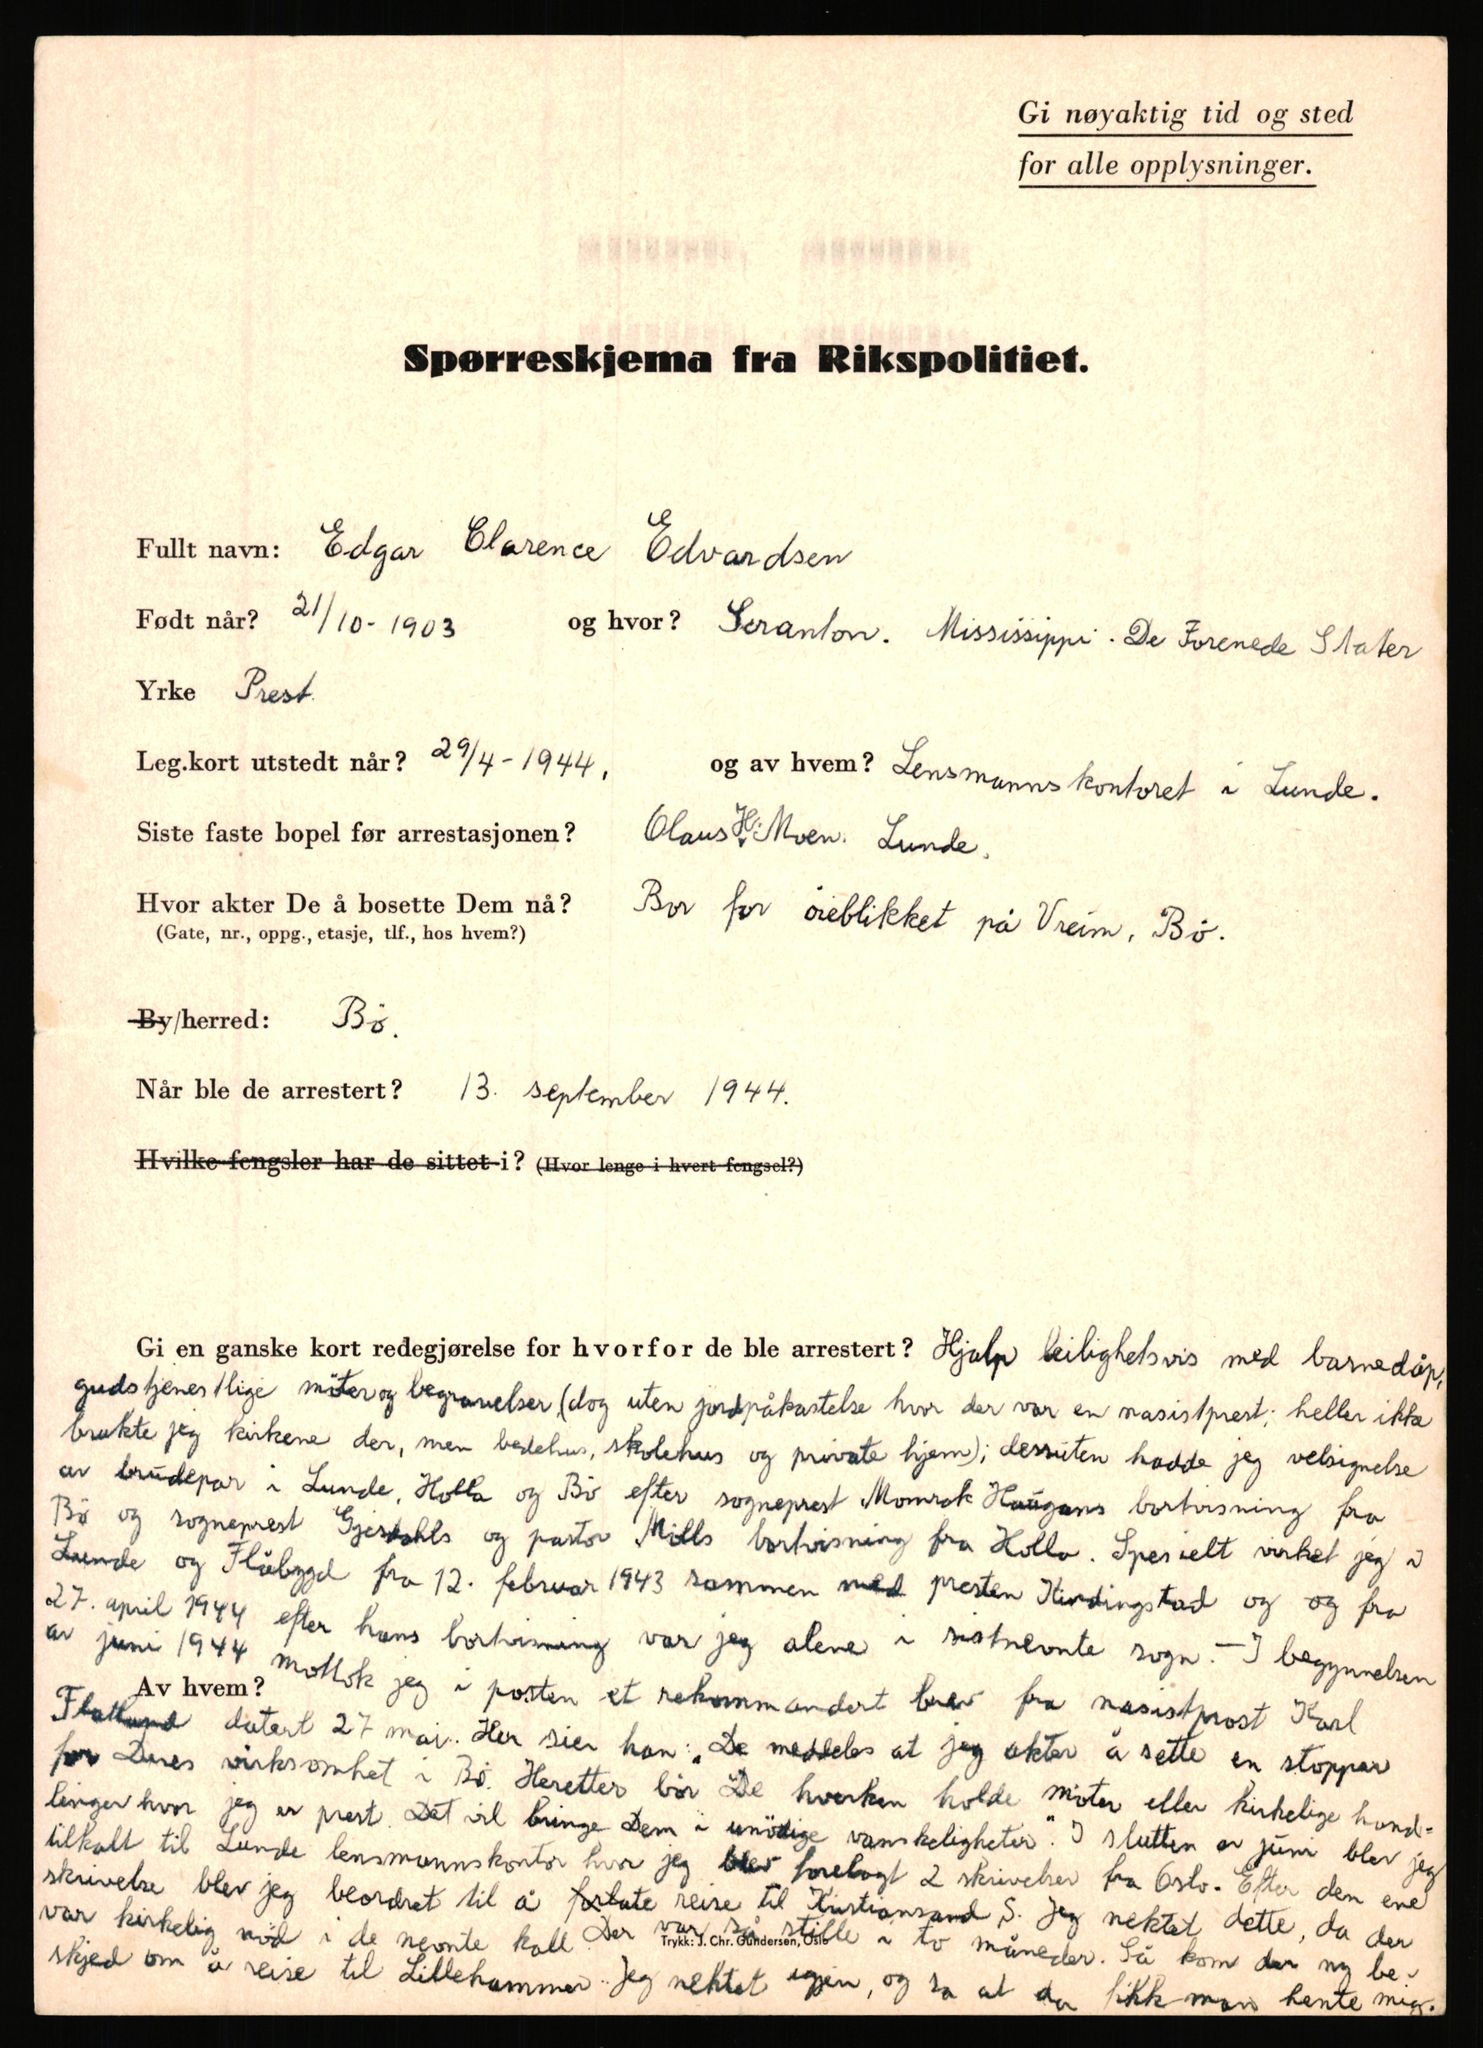 Gi nøyaktig tid og sted
for alle opplysninger.
Spørreskjema fra Rikspolitiet.
Fullt navn: Edgar Clarence Edvardsen
Født når? 21/10-1903 og hvor? Scranton. Mississippi. De Forenede Stater
Yrke Prest
Leg.kort utstedt når? 29/4-1944, og av hvem? Lensmannskontoret i Lunde.
Siste faste bopel før arrestasjonen? Olaus H. Moen. Lunde.
Hvor akter De å bosette Dem nå? Bor for öieblikket på Vreim, Bö.
(Gate, nr., oppg., etasje, tlf., hos hvem?)
By/herred: Bö.
Når ble de arrestert? 13. september 1944.
Hvilke fengsler har de sittet i? (Hvor lenge i hvert fengsel?)
Gi en ganske kort redegjørelse for hvorfor de ble arrestert? Hjalp leilighetsvis med barnedåp,
gudstjenestlige möter og begravelser, (dog uten jordpåkastelse hvor der var en nasistprest; heller ikke
brukte jeg kirkene der, men bedehus, skolehus og private hjem); dessuten hadde jeg velsignelse
av brudepar i Lunde, Holla og Bö efter sogneprest Momrak Haugans bortvisning fra
Bö og sogneprest Gjerdahls og pastor Mills bortvisning fra Holla. Spesielt virket jeg i
Lunde og Flåbygd fra 12. februar 1943 sammen med presten Kindingstad og og fra
27. april 1944 efter hans bortvisning var jeg alene i sistnevnte sogn. - I begynnelsen
av juni 1944 mottok jeg i posten et rekommandert brev fra nasistprost Karl
Av hvem?
Flatland datert 27 mai. Her sier han: "De meddeles at jeg akter å sette en stoppar
for Deres virksomhet i Bö. Heretter bör De hverken holde möter eller kirkelige hand=
linger hvor jeg er prest. Det vil bringe Dem i unödige vanskeligheter". I slutten av juni blev jeg
tilkalt til Lunde lensmannskontor hvor jeg blev forelagt 2 skrivelser fra Oslo. Efter den ene
skrivelse blev jeg beordret til å reise til Kristiansand S. Jeg nektet dette, da der
var kirkelig nöd i de nevnte kall. Der var så stille i to måneder. Så kom der ny be-
Trykk: J. Chr. Gundersen, Oslo
skjed om å reise til Lillehammer. Jeg nektet igjen, og sa at da fikk man hente mig.